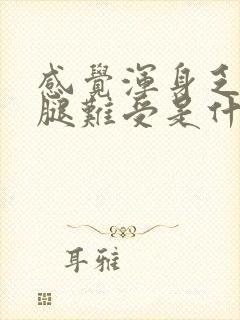 感覺渾身乏
腿難受是什
耳雅